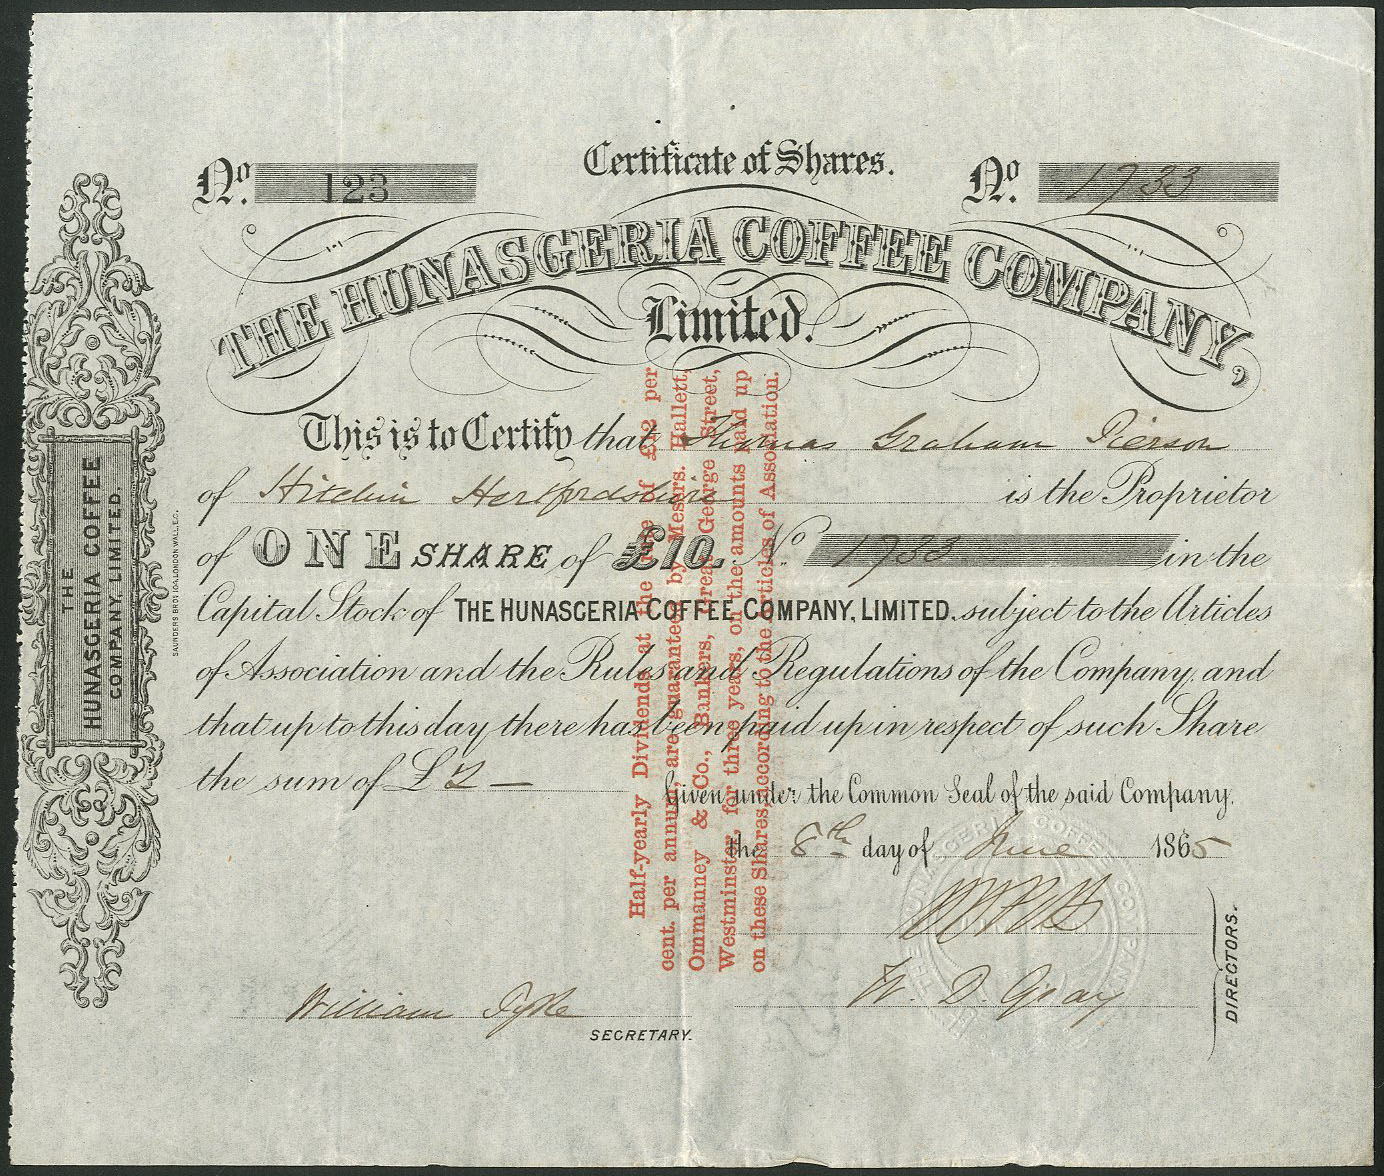 Certificate of Shares.
No. 123
No. 1733
THE HUNASGERIA COFFEE COMPANY,
Limited.
This is to Certify that Thomas Graham Pierson
of Hitchin Hertfordshire is the Proprietor
of ONE SHARE of £10. No. 1733 in the
Capital Stock of THE HUNASGERIA COFFEE COMPANY, LIMITED, subject to the Articles
of Association and the Rules and Regulations of the Company, and
that up to this day there has been paid up in respect of such Share
the sum of £2 —
Given under the Common Seal of the said Company,
the 8th day of June 1865
W. D. Gray
DIRECTORS.
William Tyke
SECRETARY.
Half-yearly Dividends at the rate of £12 per
cent. per annum, are guaranteed by Messrs. Hallett,
Ommanney & Co., Bankers, Great George Street,
Westminster, for three years, on the amounts paid up
on these Shares, according to the Articles of Association.
THE
HUNASGERIA COFFEE
COMPANY, LIMITED.
SAUNDERS BROS 104, LONDON WALL, E.C.
THE HUNASGERIA COFFEE COMPANY